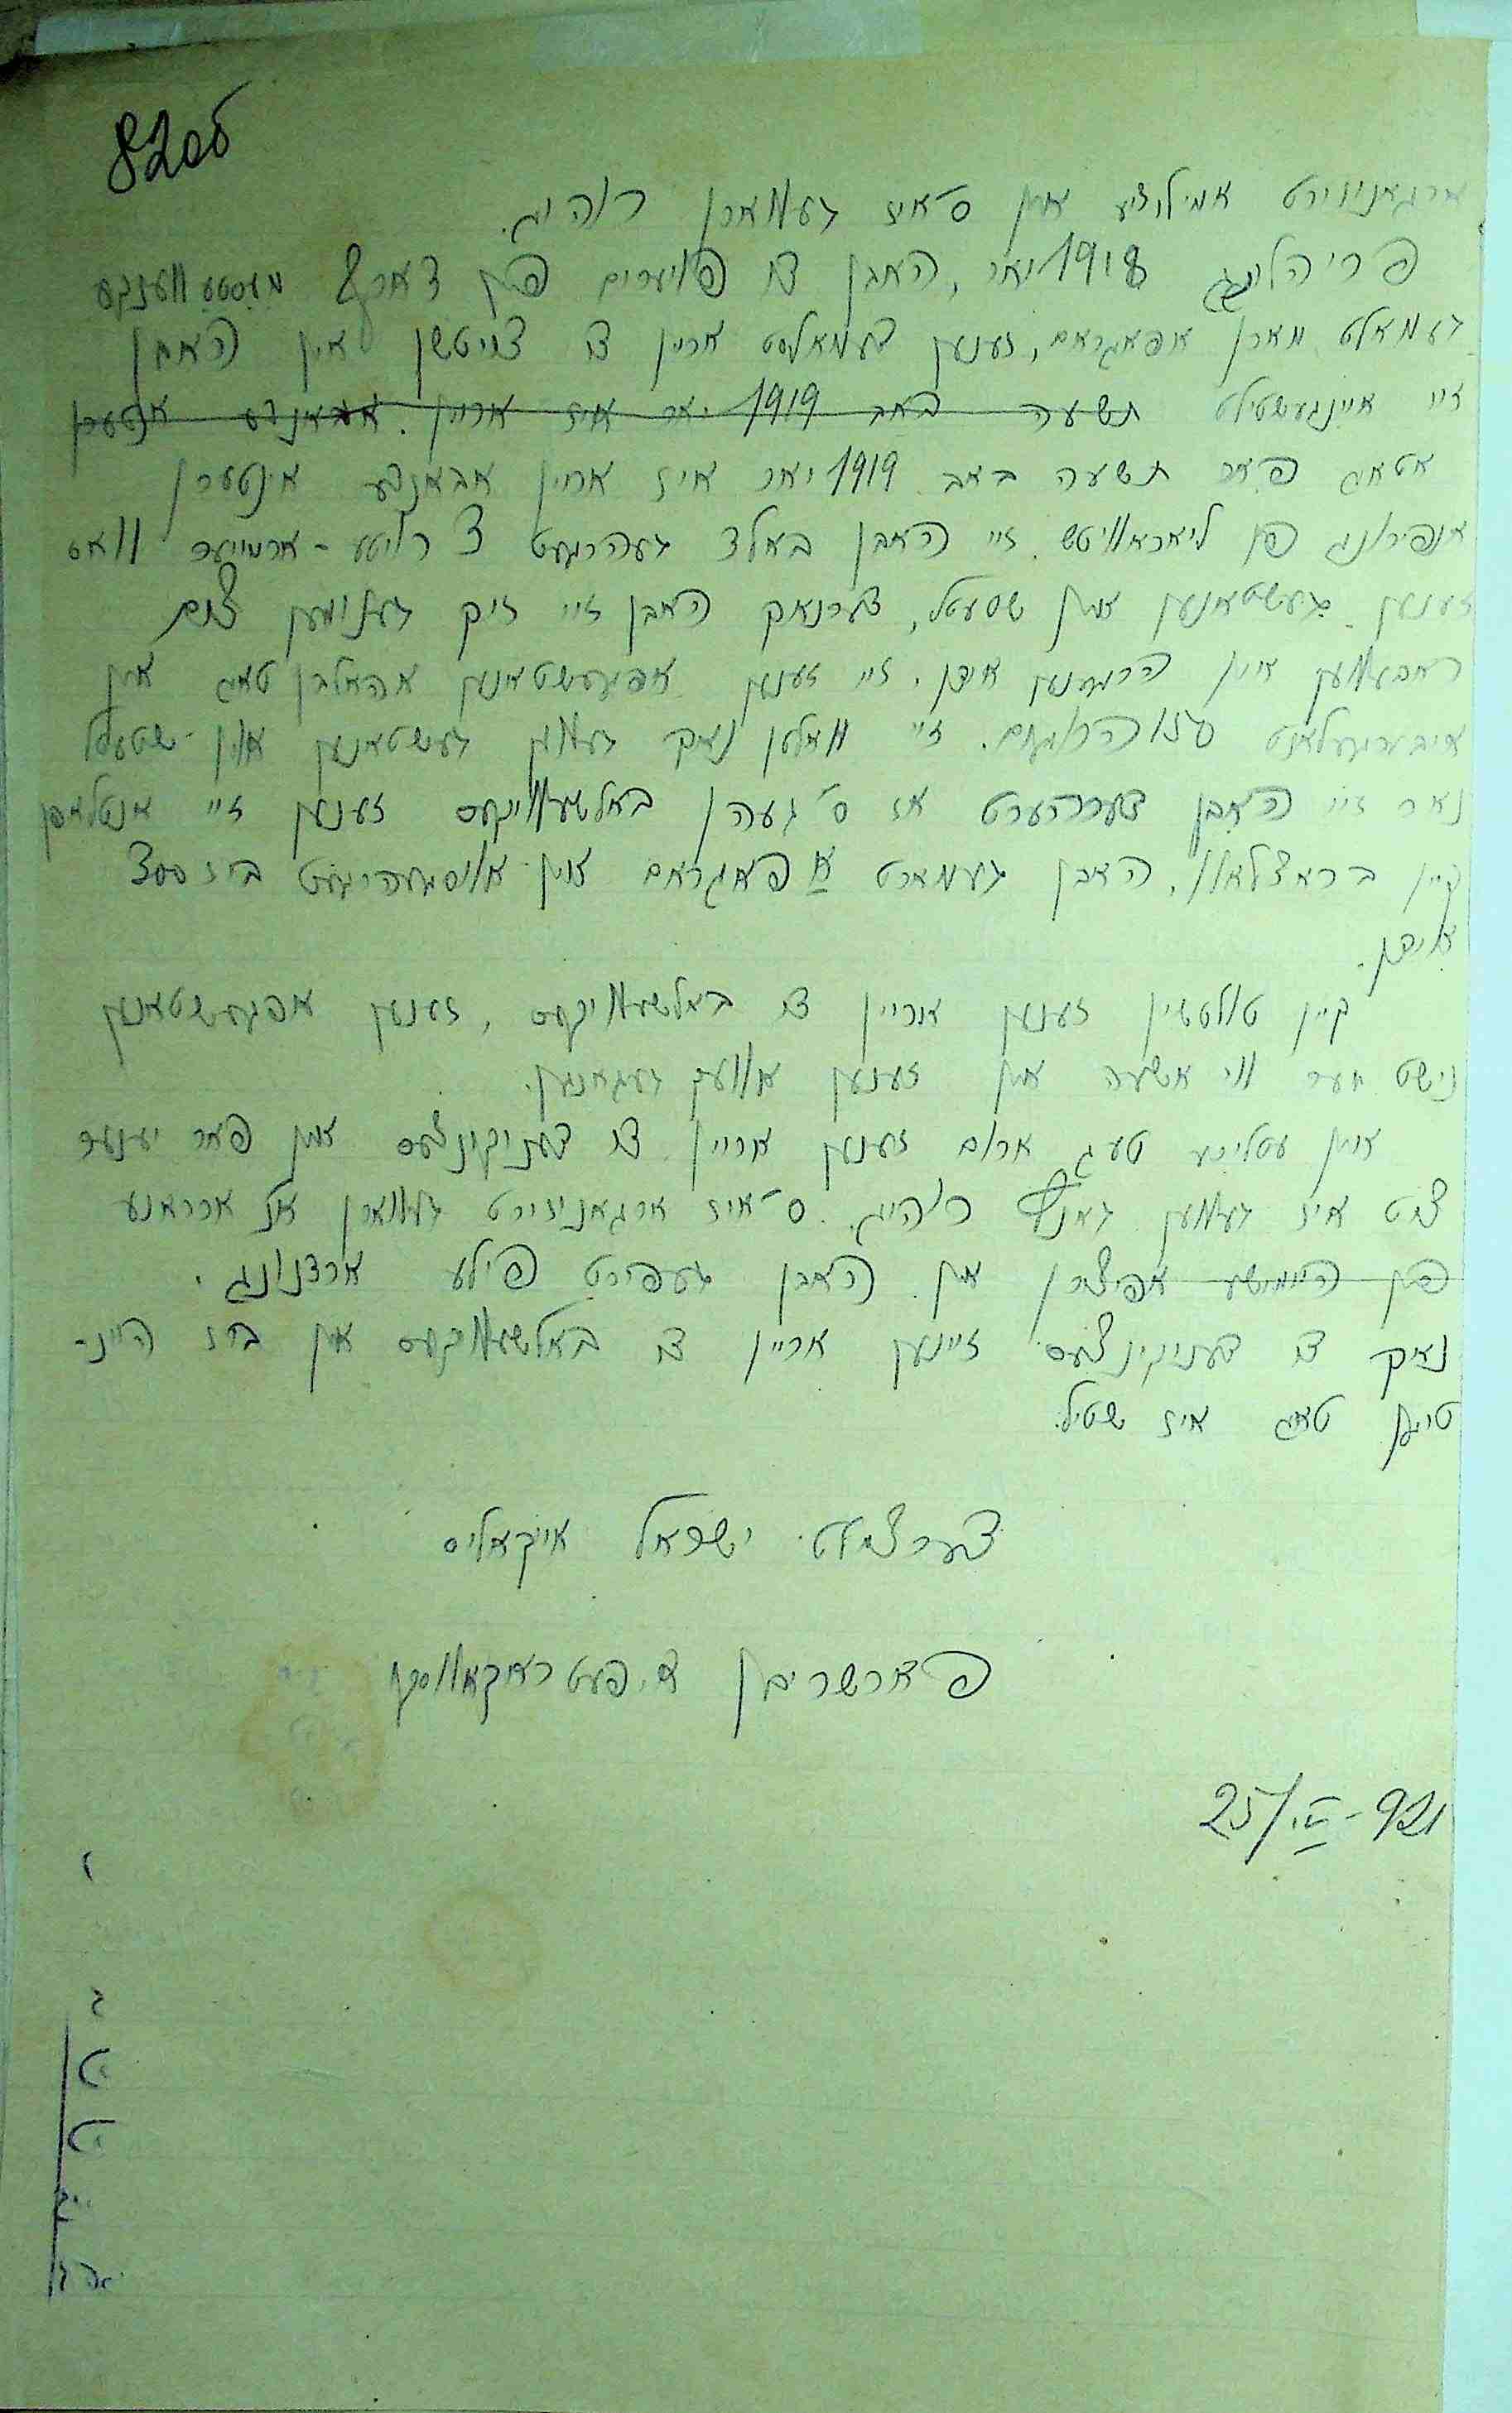 820б
ארגאניזירט אמיליציע און ס'איז געווארן רוהיג.
פריהלינג 1918 יאר, האבן די פויערים פון דארף מעסטעווענקע
געמאלט מארן אפאגראם, זענען דעמאלסט אריין די דייטשן אין האבן
זיי איינגעשטילט תשעה באב 1919 יאר איז אריין. אבאנדע אונטערן
אטאג פאר תשעה באב 1919 יאר איז אריין אבאנדע אינטערן
אנפירונג פון ליאראוויטש. זיי האבן באלד געהרגעט 3 רויטע-ארמייער וואס
זענען געשטאנען אין שטעטל, דערנאך האבן זיי זיך גענומען צום
ראבעווען אין הרגענען אידן. זיי זענען אפגעשטאנען אהאלבן טאג אין
איבערגעלאזט 150 הרוגים. זיי וואלטן נאך געווען געשטאנען אין שטעטל
נאר זיי האבן דערהערט אז ס'גייהן באלשעוויקעס זענען זיי אנטלאפן
קיין בראצלאוו, האבן געמאכט א פאגראם אין אויסגעהרגעט ביז 300
אידן.
קיין טולטשין זענען אריין די באלשעוויקעס, זענען אפגעשטאנען
נישט מער ווי אשעה און זענען אוועק געגאנגען.
אין עטליכע טעג ארום זענען אריין די דעניקינצעס און פאר יענער
צייט איז געווען גאנץ רוהיג. ס'איז ארגאניזירט געווארן אן אכראנע
פון היימישע אפיצערן און האבן געפירט פילע ארדנונג.
נאך די דעניקינצעס זיינען אריין די באלשעוויקעס און ביז היינ-
טיגן טאג איז שטיל.
דערציילט ישראל אייקאליס
פארשריבן פעטראקאווסקי
25/IV-921